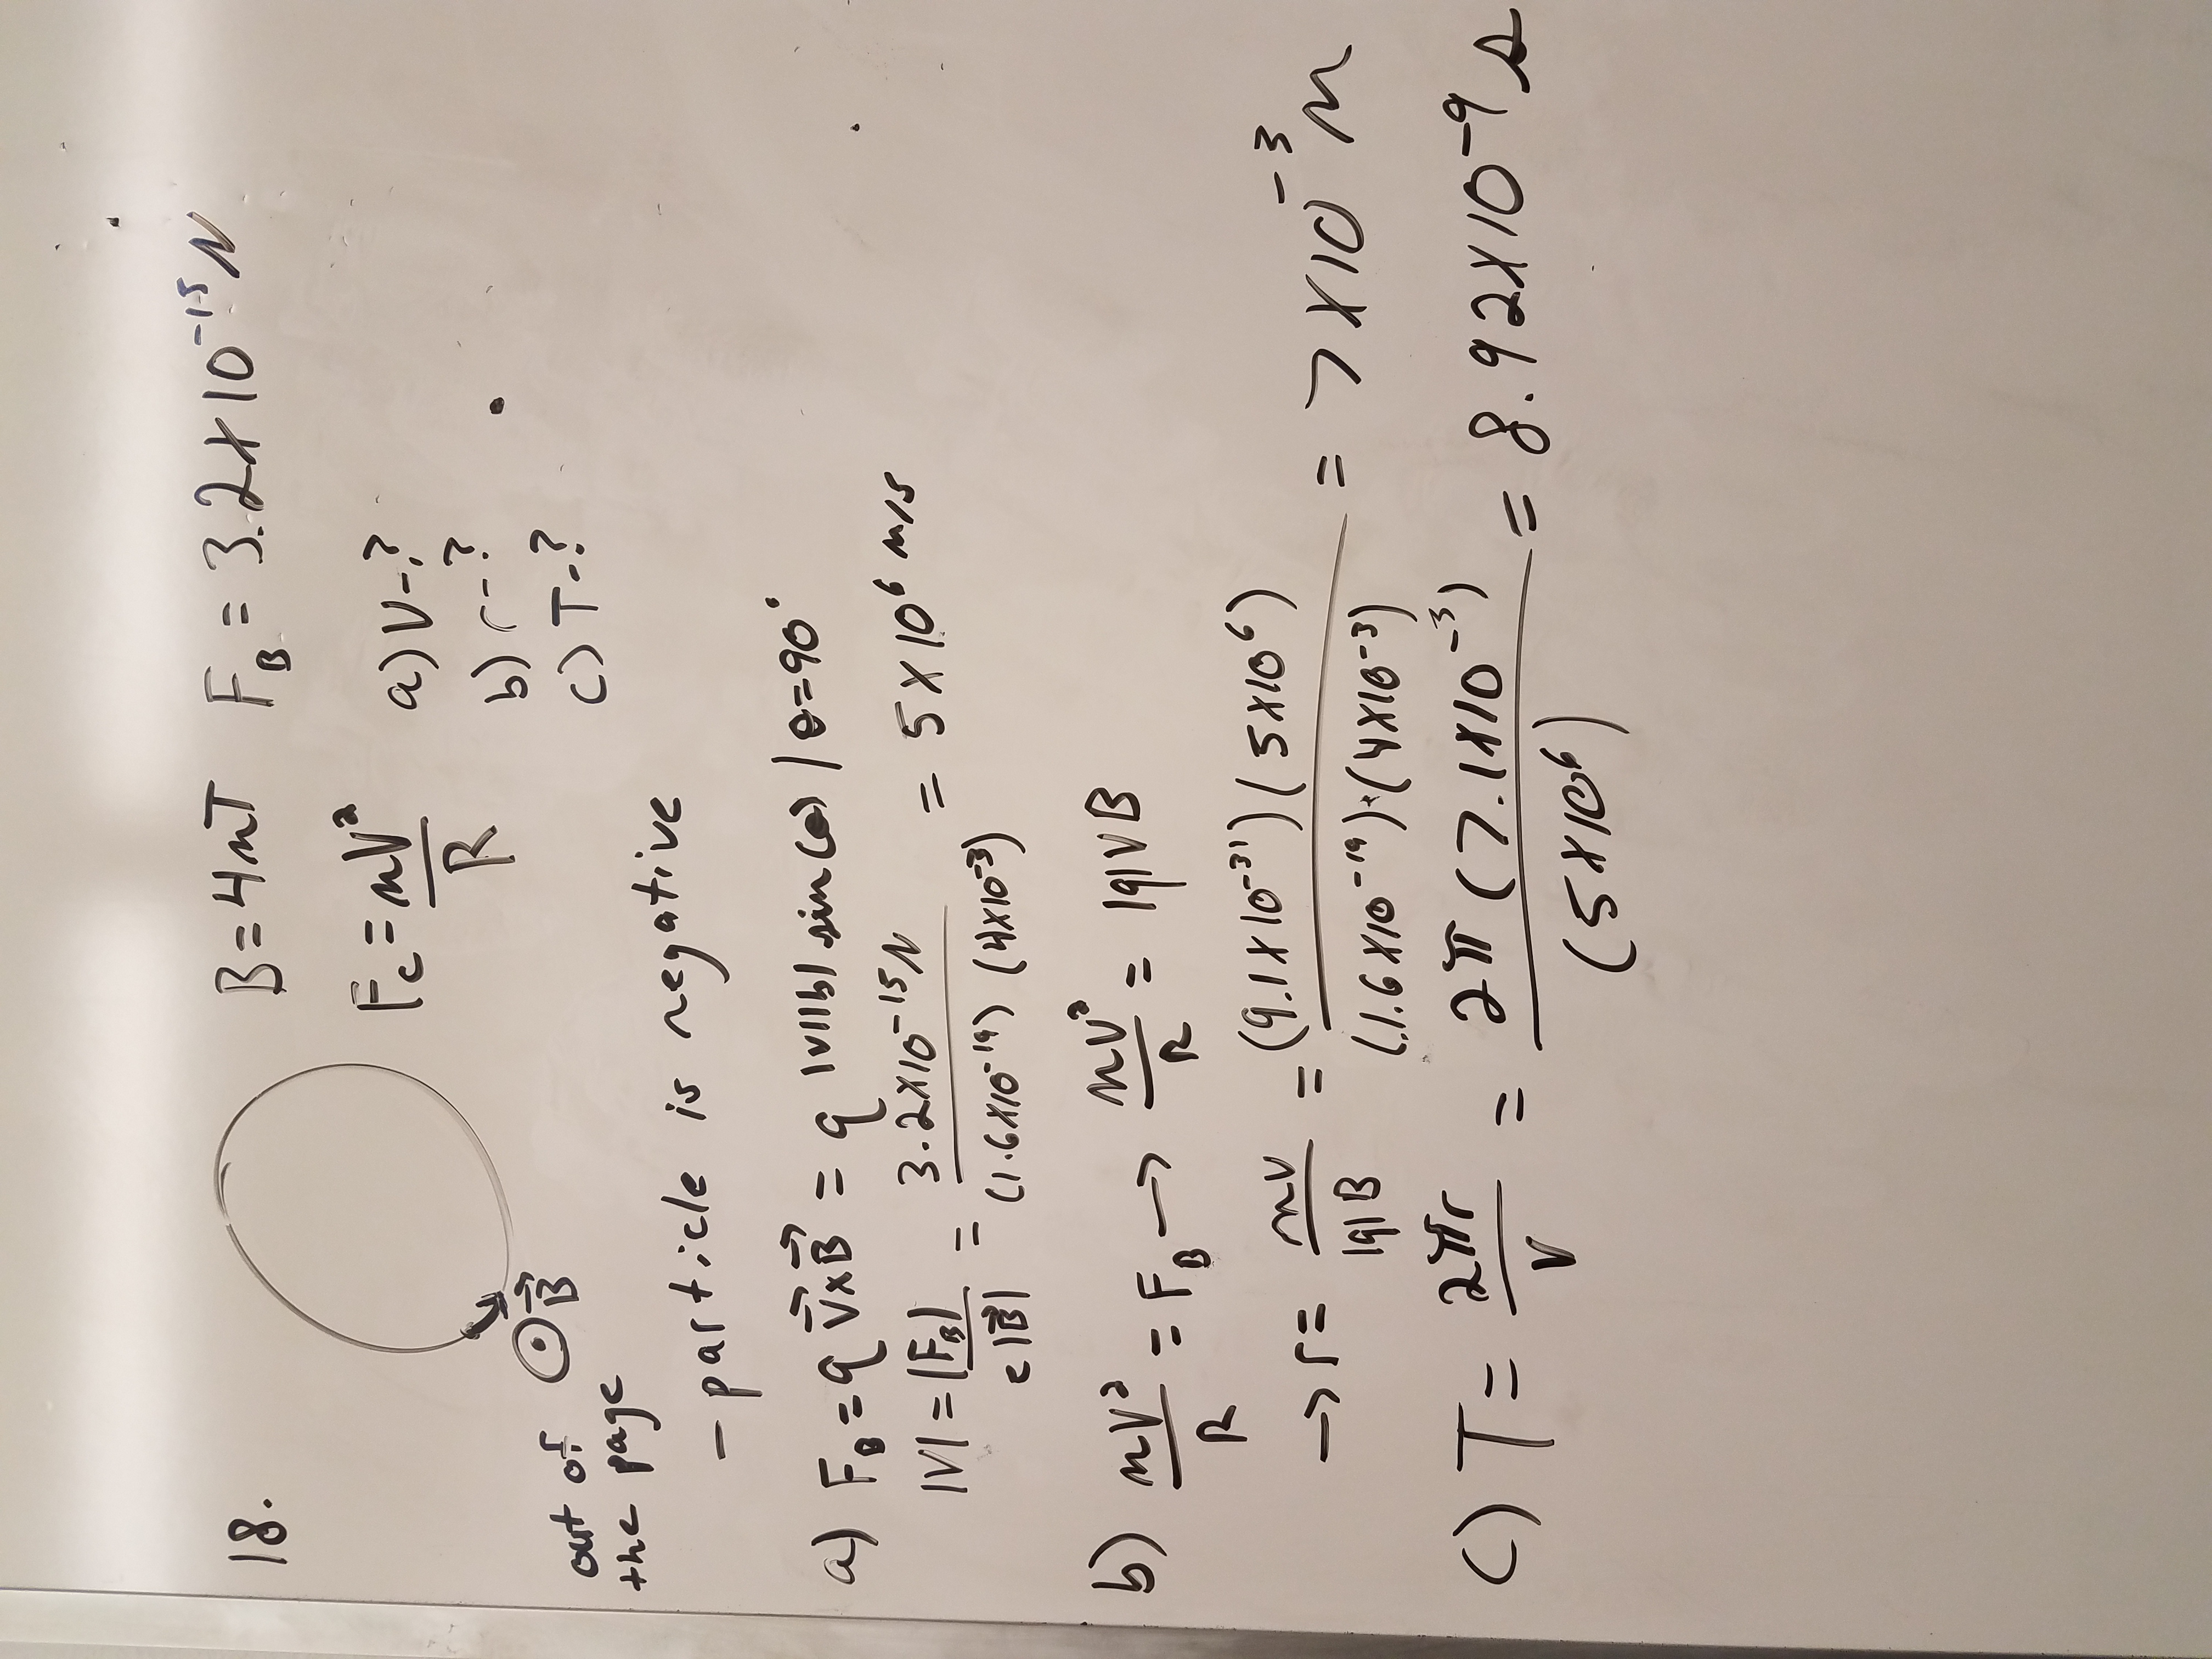 18.
B = 4mT F_B = 3.2×10^-15 N
F_c = mV²/R
a) V-?
b) r-?
c) T-?
⊙ B⃗
out of
the page
- particle is negative
a) F_B = q V⃗×B⃗ = q |v||b| sin(θ) / θ=90°
|V| = |F_B|/e|B⃗| = 3.2×10^-15 N/(1.6×10^-19) (4×10^-3) = 5×10^6 m/s
b) mV²/R = F_B → mV²/R = |q|VB
→ r = mv/|q|B = (9.1×10^-31)(5×10^6)/(1.6×10^-19)·(4×10^-3) = 7×10^-3 m
c) T = 2πr/v = 2π(7.1×10^-3)/(5×10^6) = 8.92×10^-9 s